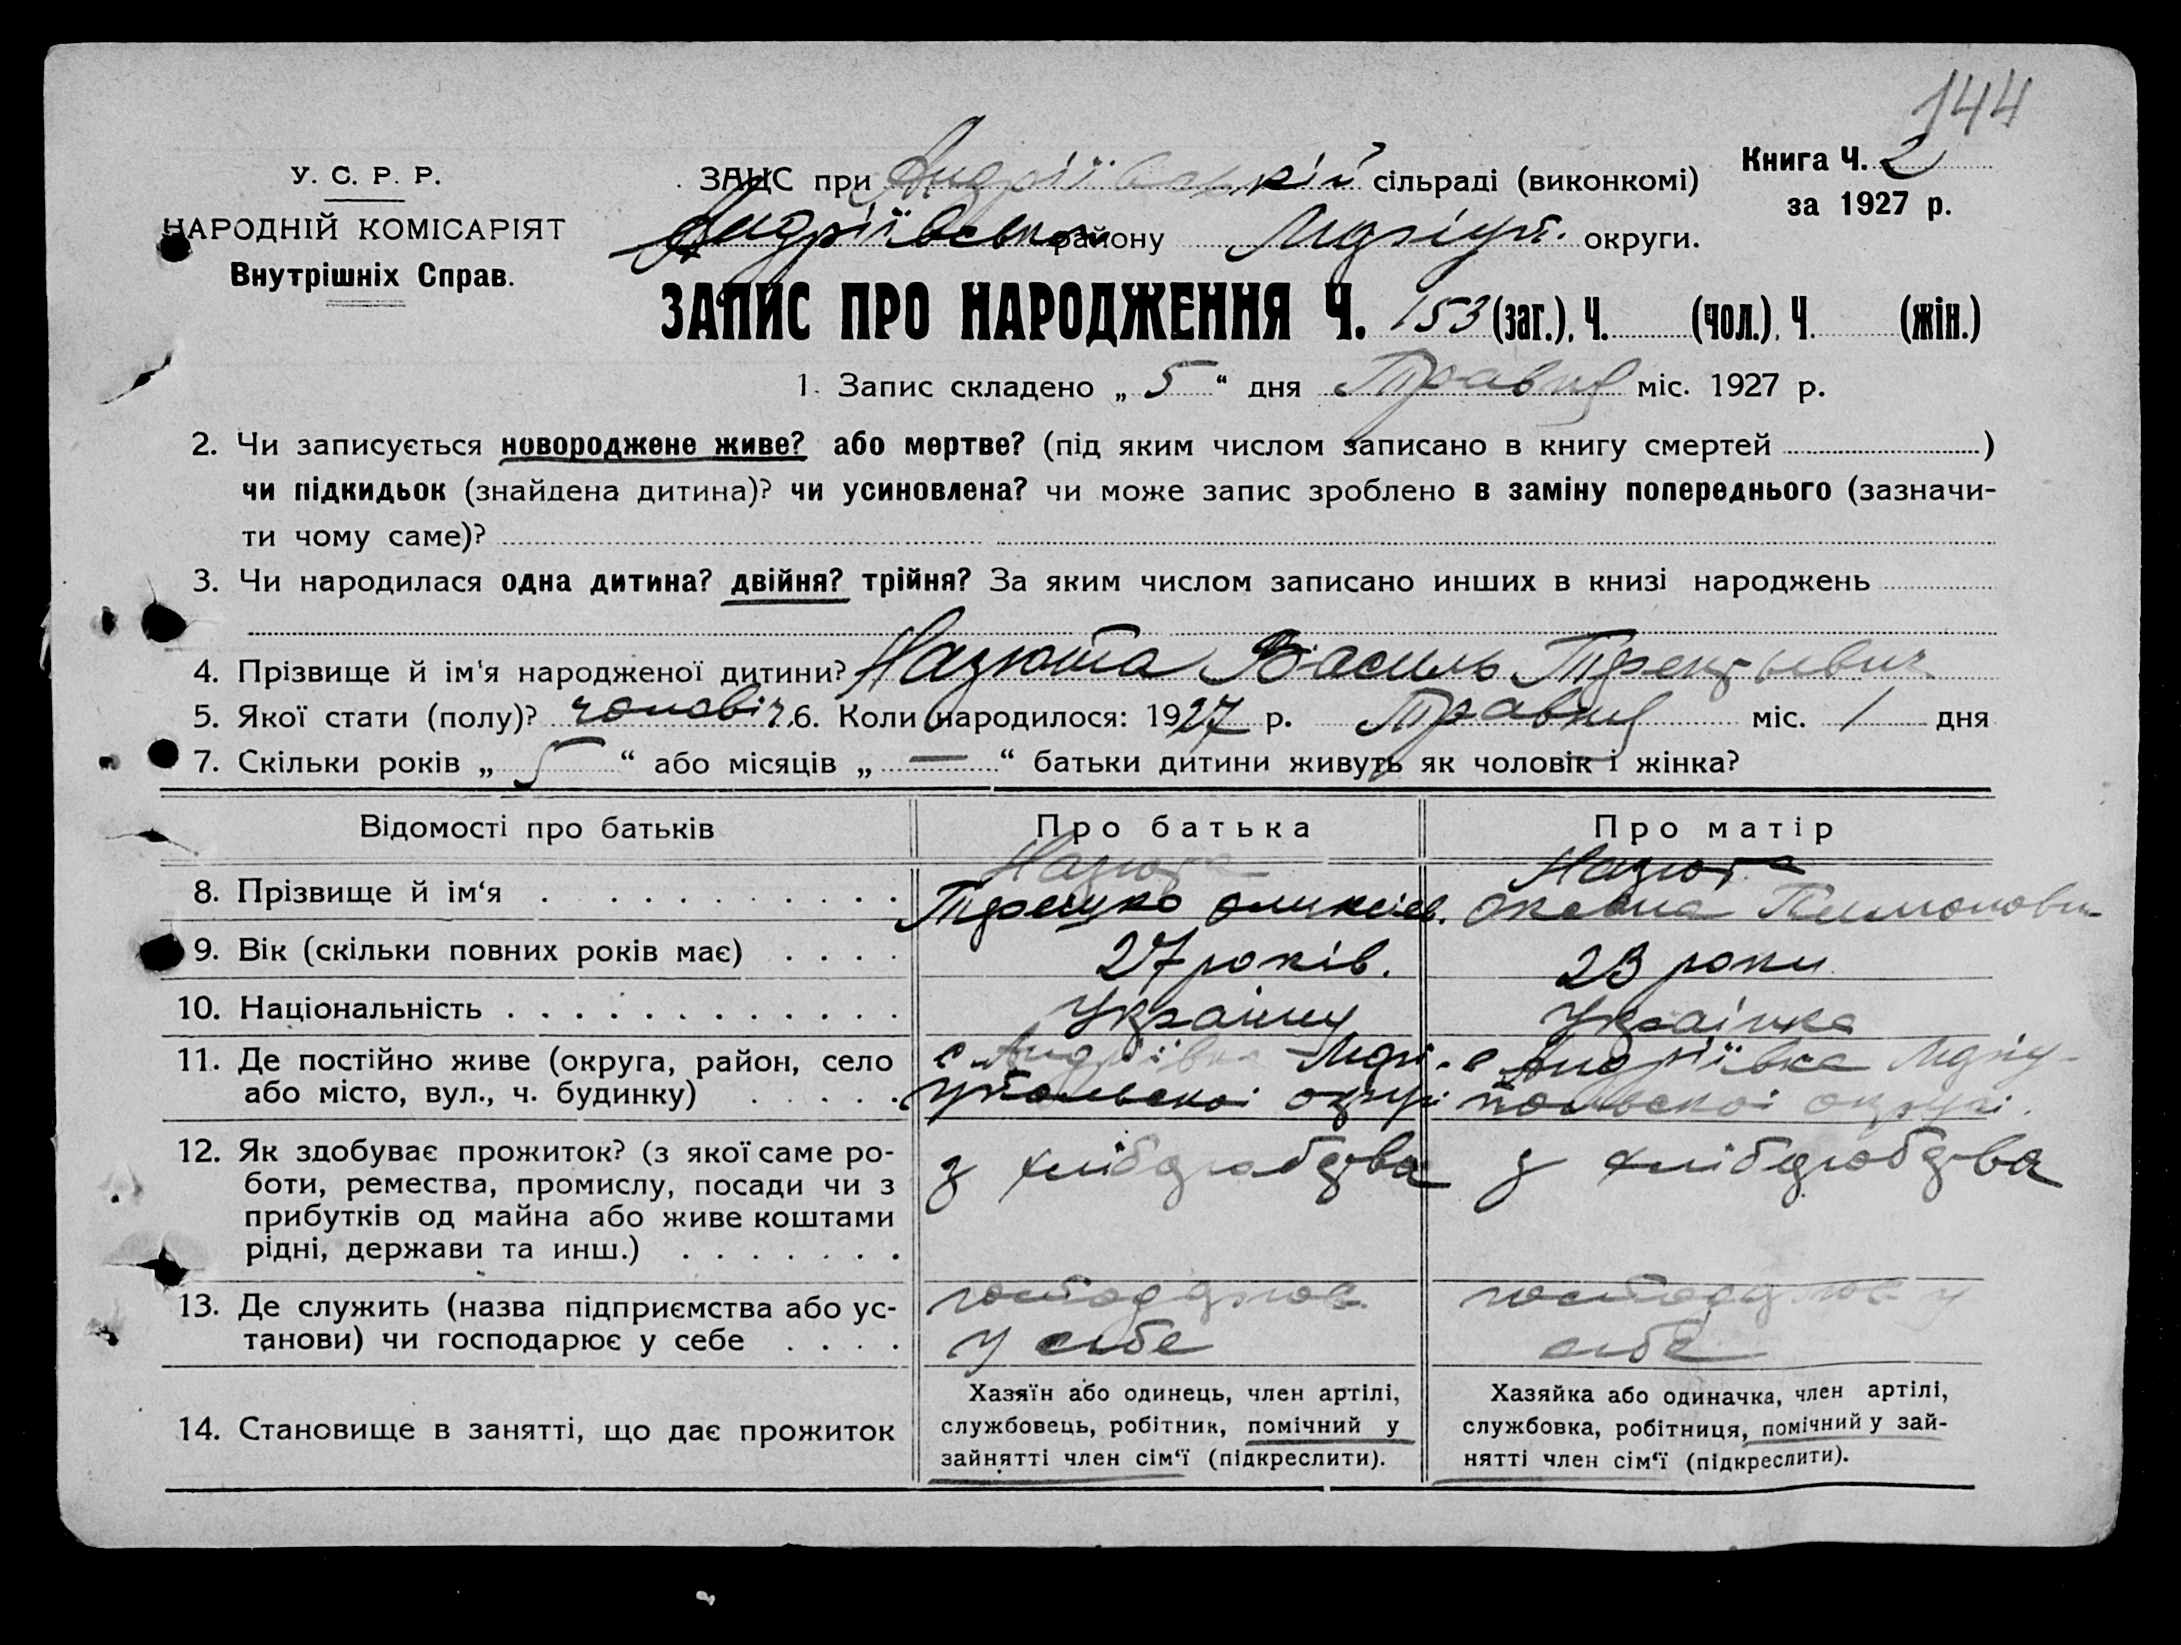 144
У. С. Р. Р.
НАРОДНІЙ КОМІСАРІЯТ
Внутрішніх Справ.
ЗАЦС при Андріївській сільраді (виконкомі)
Книга Ч. 2
за 1927 р.
Андріївського району Мдріуп. округи.
ЗАПИС ПРО НАРОДЖЕННЯ Ч. 153 (заг.), Ч. (чол.), Ч. (жін.)
1. Запис складено „ 5 “ дня Травня міс. 1927 р.
2. Чи записується новороджене живе? або мертве? (під яким числом записано в книгу смертей )
чи підкидьок (знайдена дитина)? чи усиновлена? чи може запис зроблено в заміну попереднього (зазначи-
ти чому саме)?
3. Чи народилася одна дитина? двійня? трійня? За яким числом записано инших в книзі народжень
4. Прізвище й ім'я народженої дитини? Назюта Василь
5. Якої стати (полу)? чоловіч. 6. Коли народилося: 1927 р. Травня міс. 1 дня
7. Скільки років „ 5 “ або місяців „ — “ батьки дитини живуть як чоловік і жінка?
Відомості про батьків Про батька Про матір
8. Прізвище й ім‘я Назюта Назюта
Оксана
9. Вік (скільки повних років має) 27 років. 23 роки
10. Національність Українц Українка
11. Де постійно живе (округа, район, село с Андріївка с Андріївка
або місто, вул., ч. будинку) округі округі
12. Як здобуває прожиток? (з якої саме ро- з хлібдробдва з хлібдробдва
боти, ремества, промислу, посади чи з
прибутків од майна або живе коштами
рідні, держави та инш.)
13. Де служить (назва підприємства або ус-
танови) чи господарює у себе у себе себе
14. Становище в занятті, що дає прожиток
Хазяїн або одинець, член артілі,
службовець, робітник, помічний у
зайнятті член сім‘ї (підкреслити).
Хазяйка або одиначка, член артілі,
службовка, робітниця, помічний у зай-
нятті член сім‘ї (підкреслити).